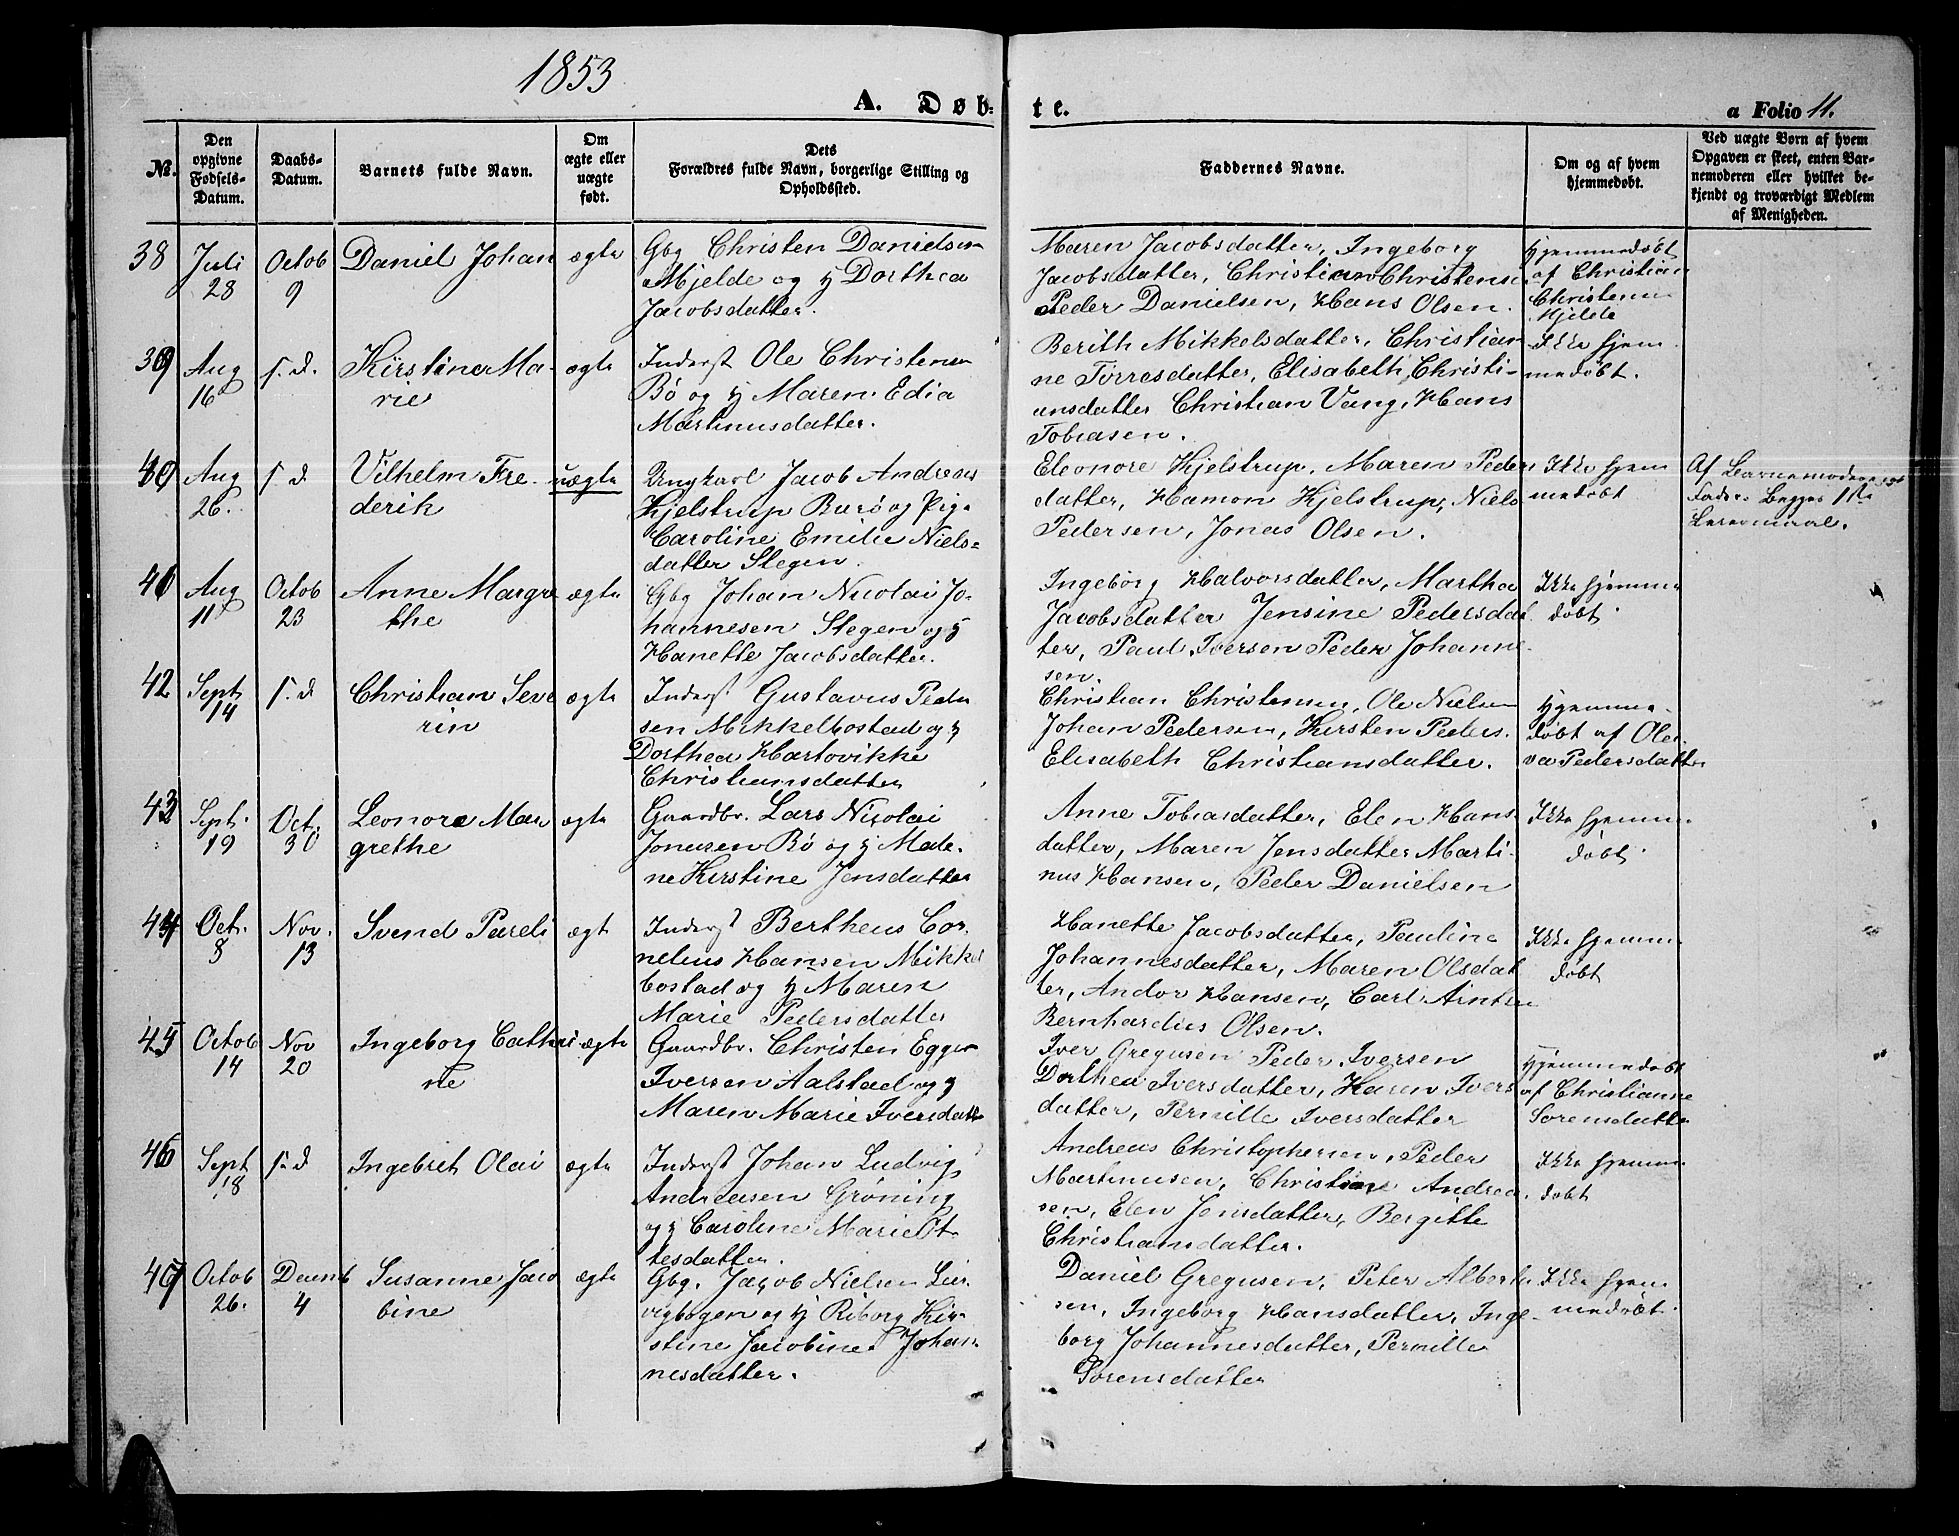 1853
A. Døb-
te.
a Folio 11.
No.
Den
opgivne
Fødsels-
Datum.
Daabs-
Datum.
Barnets fulde Navn.
Om
ægte eller
uægte
født.
Dets
Forældres fulde Navn, borgerlige Stilling og
Opholdssted.
Faddernes Navne.
Om og af hvem
hjemmedøbt.
Ved uægte Børn af hvem
Opgaven er skeet, enten Bar-
nemoderen eller hvilket be-
kjendt og troværdigt Medlem
af Menigheden.
38
Juli
28
Octob
9
Daniel Johan
ægte
Gbg Christen Danielsen
Mjelde og H Dorthea
Jacobsdatter.
Maren Jacobsdatter, Ingeborg
Jacobsdatter, Christian Christensen
Peder Danielsen, Hans Olsen.
Hjemmedøbt
af Christian
Christensen
Mjelde
39
Aug
16
s. d.
Kirstine Ma-
rie
ægte
Inderst Ole Christensen
Bø og H Maren Edia
Martinusdatter.
Berith Mikkelsdatter, Christian-
ne Torresdatter, Elisabeth Christi-
ansdatter Christian Vang, Hans
Tobiasen.
Ikke hjem-
medøbt.
40
Aug
26.
s. d
Vilhelm Fre-
derik
uægte
Ungkarl Jacob Andreas
Hjelstrup Burø og Pige
Caroline Emilie Niels-
datter Stegen.
Eleonore Hjelstrup, Maren Peders
datter, Hamon Hjelstrup, Niels
Pedersen, Jonas Olsen.
Ikke hjem
medøbt
Af Barnemoderen
Fader. Begges 1ste
Leiermaal.
41
Aug
11
Octob
23
Anne Margre
the
ægte
Gbg Johan Nicolai Jo-
hannesen Stegen og H
Hanette Jacobsdatter.
Ingeborg Halvorsdatter, Martha
Jacobsdatter Jensine Pedersdat
ter, Paul Iversen Peder Johanne-
sen.
Ikke hjemme
døbt
42
Sept
14
s. d
Christian Seve
rin
ægte
Inderst Gustavus Peder
sen Mikkelbostad og H
Dorthea Hartovikke
Christiansdatter
Christian Christensen, Ole Nielsen
Johan Pedersen, Kirsten Peders.
Elisabeth Christiansdatter.
Hjemme-
døbt af Ole-
va Pedersdatter
43
Sept.
19
Oct.
30
Leonore Mar
grethe
ægte
Gaardbr. Lars Nicolai
Jonasen Bø og H Made-
ne Kirstine Jensdatter
Anne Tobiasdatter, Elen Hans-
datter, Maren Jensdatter Marti-
nus Hansen, Peder Danielsen
Ikke hjemme-
døbt
44
Oct.
8
Nov.
13
Svend Pareli
ægt
Inderst Bertheus Cor-
nelius Hansen Mikkel
bostad og H Maren
Marie Pedersdatter
Hanette Jacobsdatter, Pauline
Johannesdatter, Maren Olsdat
ter, Andor Hansen, Carl
Bernhardus Olsen.
Ikke hjemme-
døbt
45
Octob
14
Nov
20
Ingeborg Cathri
ne
ægte
Gaardbr. Christen Egger
Iversen Aalstad og H
Maren Marie Iversdatt
Iver Gregusen Peder Iversen
Dorthea Iversdatter, Karen Ivers
datter, Pernille Iversdatter
Hjemmedøbt
af Christianne
Sorensdatter
46
Sept
18
s. d
Ingebret Olai
ægte
Inderst Johan Ludvig
Andreasen Grøning
og H Caroline Marie Ot-
tesdatter.
Andreas Christophersen, Peder
Martinusen, Christian Andrea-
sen, Elen Jensdatter, Bergitte
Christiansdatter.
Ikke hjemme
døbt
47
Octob
26.
Decemb
4
Susanne Jaco
bine
ægte
Gbg. Jacob Nielsen Leir
vigbogen og H Riborg Kir-
stine Jacobine Johan
nesdatter.
Daniel Gregusen, Peter Albert
sen, Ingeborg Hansdatter, Inge-
borg Johannesdatter, Pernille
Sorensdatter
Ikke hjem
medøbt.